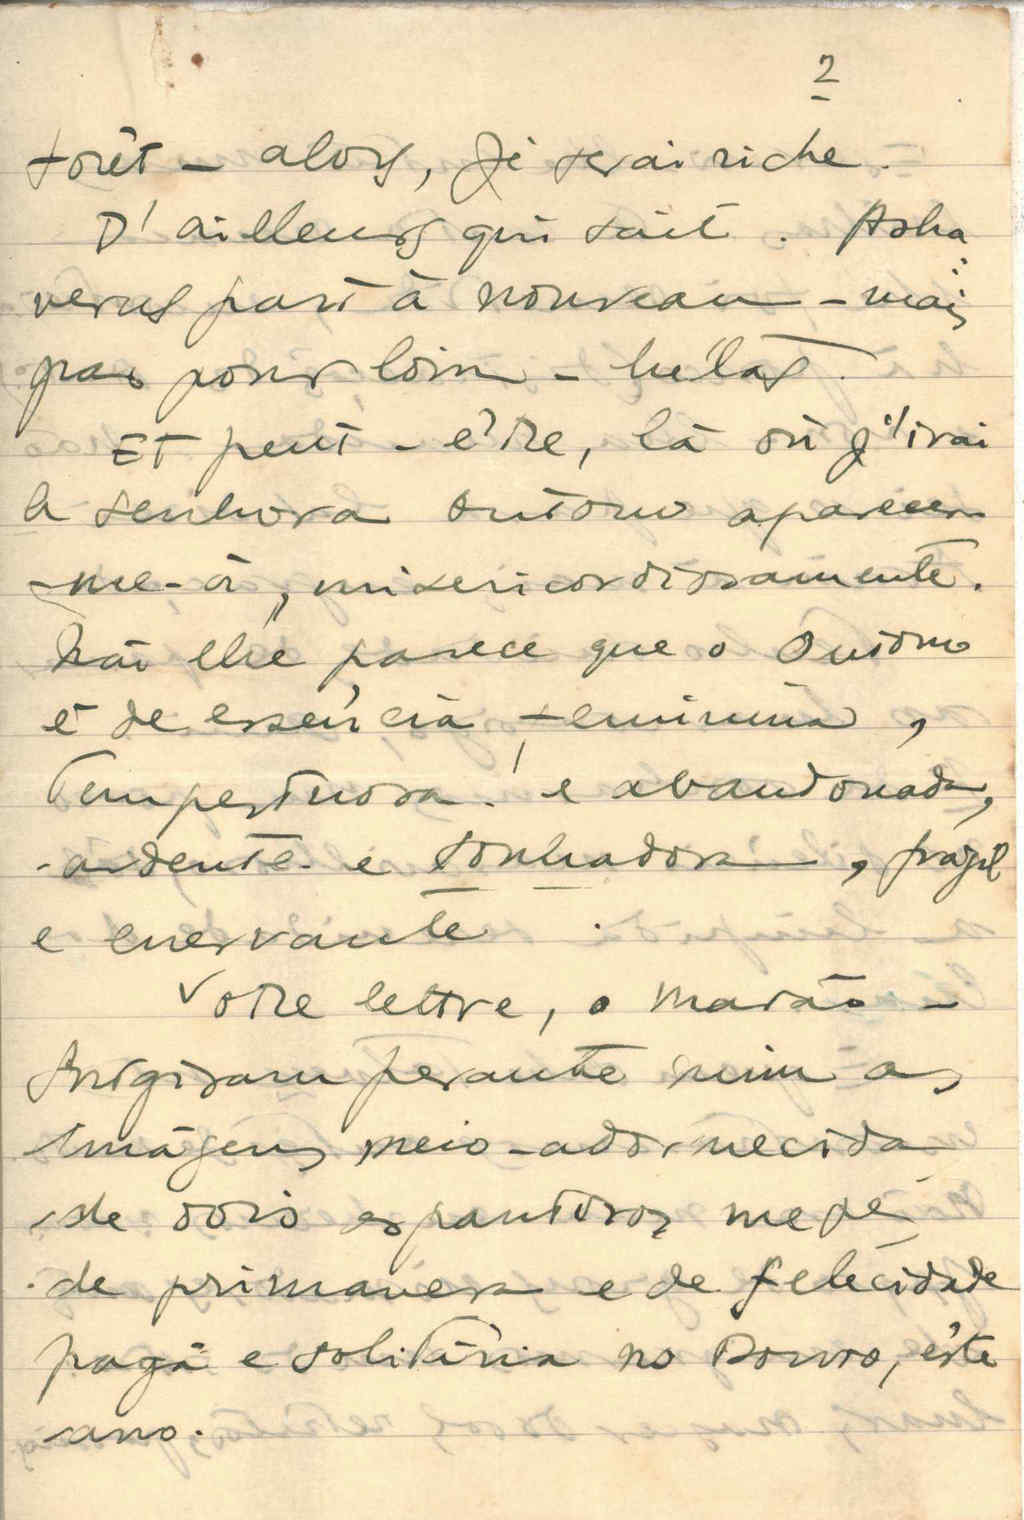 2
forêt - alors, je serai riche.
D'ailleurs qui sait. Asha
verus part à nouveau - mais
pas pour loin - hélas.
Et peut-être, là où j'irai
a senhora Outono aparecer
-me-á, misericordiosamente.
Não lhe parece que o Outono
é de essência feminina,
tempestuosa e abandonada,
ardente e sonhadora, frágil
e enervante.
Votre lettre, o Marão -
surgiram perante mim as
imagens meio-adormecida
de dois espantosos meses
de primavera e de felicidade
pagã e solitária no Douro, este
ano.